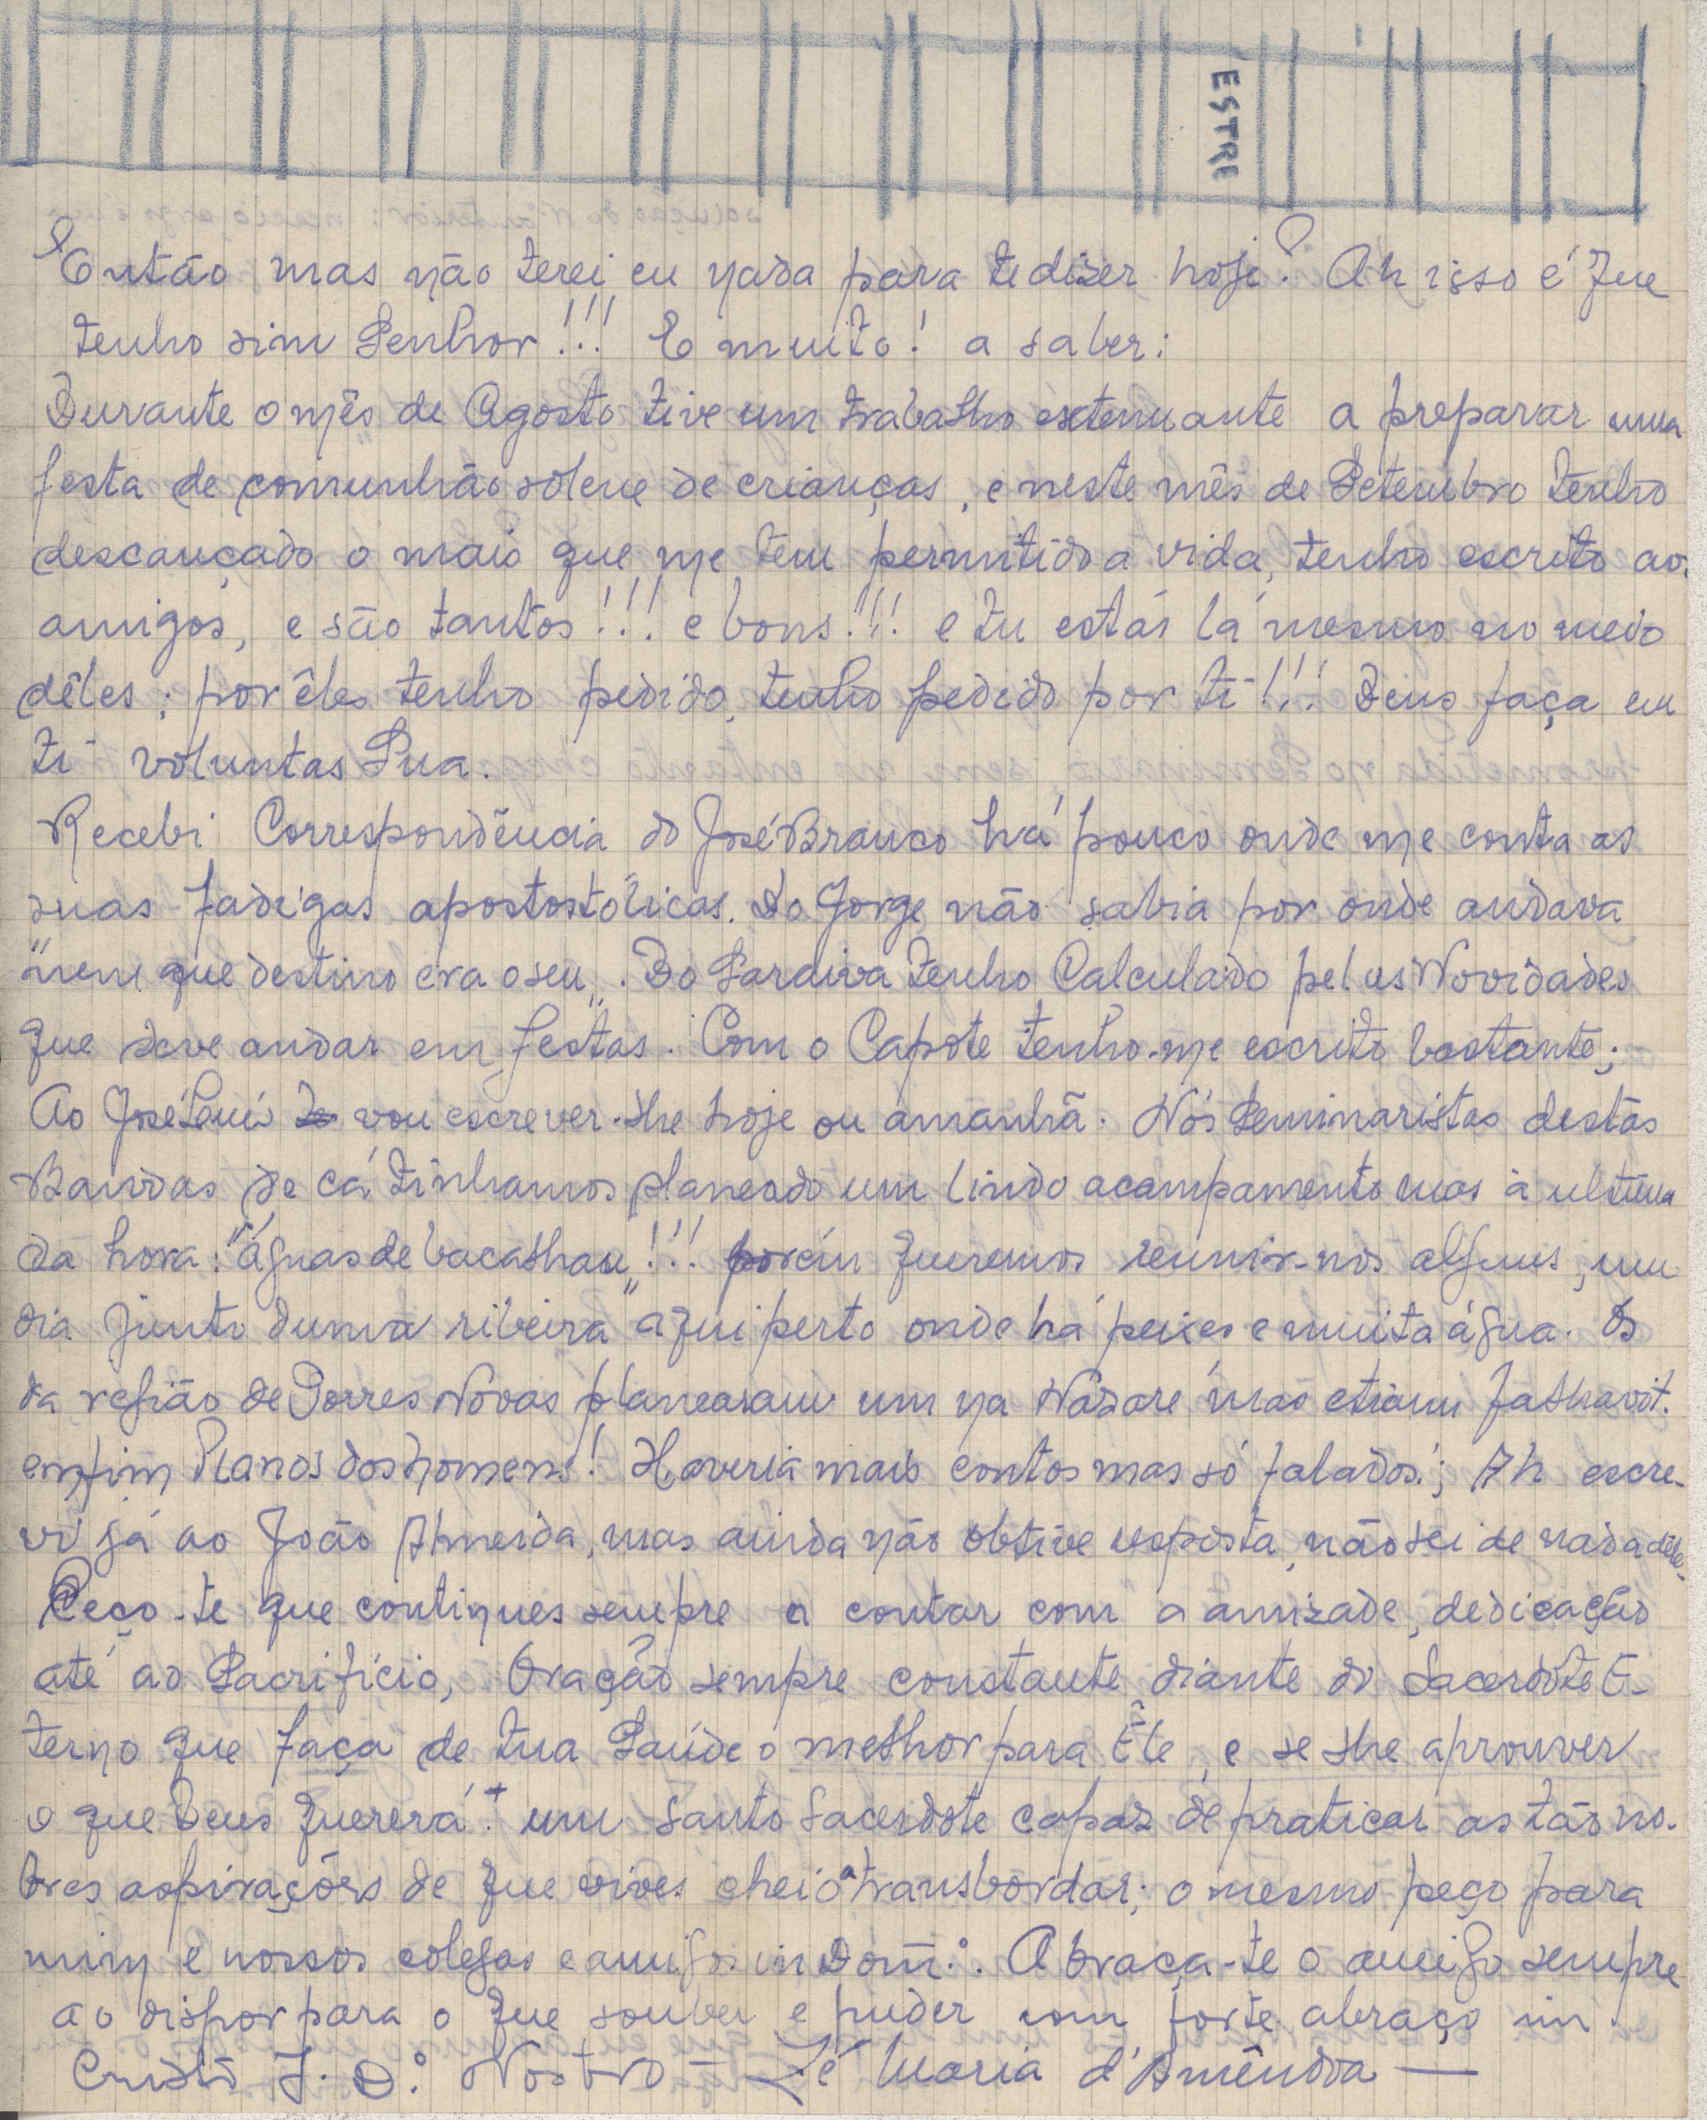 ESTRE
Então, mas não terei eu nada para te dizer hoje? Ah isso é que
tenho sim Senhor!!! E muito! a saber:
Durante o mês de Agosto tive um trabalho extenuante a preparar uma
festa de comunhão solene de crianças, e neste mês de Setembro tenho
descançado o mais que me tem permitido a vida, tenho escrito aos
amigos, e são tantos!!! e bons!!! e tu estás lá mesmo no meio
dêles; por êles tenho pedido, tenho pedido por ti!!! Deus faça em
ti voluntas Sua.
Recebi Correspondência do José Branco há pouco onde me conta as
suas fadigas apostostólicas. Do Jorge não sabia por onde andava
"nem que destino era o seu". Do Saraiva tenho Calculado pelas Novidades
que deve andar em festas. Com o Capote tenho-me escrito bastante;
Ao José Luís vou escrever-lhe hoje ou amanhã. Nós Seminaristas destas
Bandas de cá tinhamos planeado um lindo acampamento mas à ultima
da hora: "águas de bacalhau"!!! porém queremos reunir-nos alguns, um
dia junto duma ribeira aqui perto onde há peixes e muita água. Os
da região de Torres Novas planearam um na Nazaré mas etiam falhavit.
enfim Planos dos homens! Haveria mais contos mas só falados!; Ah escre-
vi já ao João Almeida, mas ainda não obtive resposta, não sei de nada dêle.
Peço-te que contiques sempre a contar com a amizade, dedicação
até ao Sacrifício, Oração sempre constante diante do Sacerdote E-
terno que faça de tua Saúde o melhor para Êle, e se lhe aprouver
o que Deus quererá + um santo sacerdote capaz de praticar as tão no-
bres aspirações de que vives cheio a transbordar; o mesmo peço para
mim e nossos colegas e amigos in Dom.º. Abraça-te o amigo sempre
ao dispor para o que souber e puder com forte abraço in
Cristo J. D.º Nostro — Zé Maria d'Amêndoa —